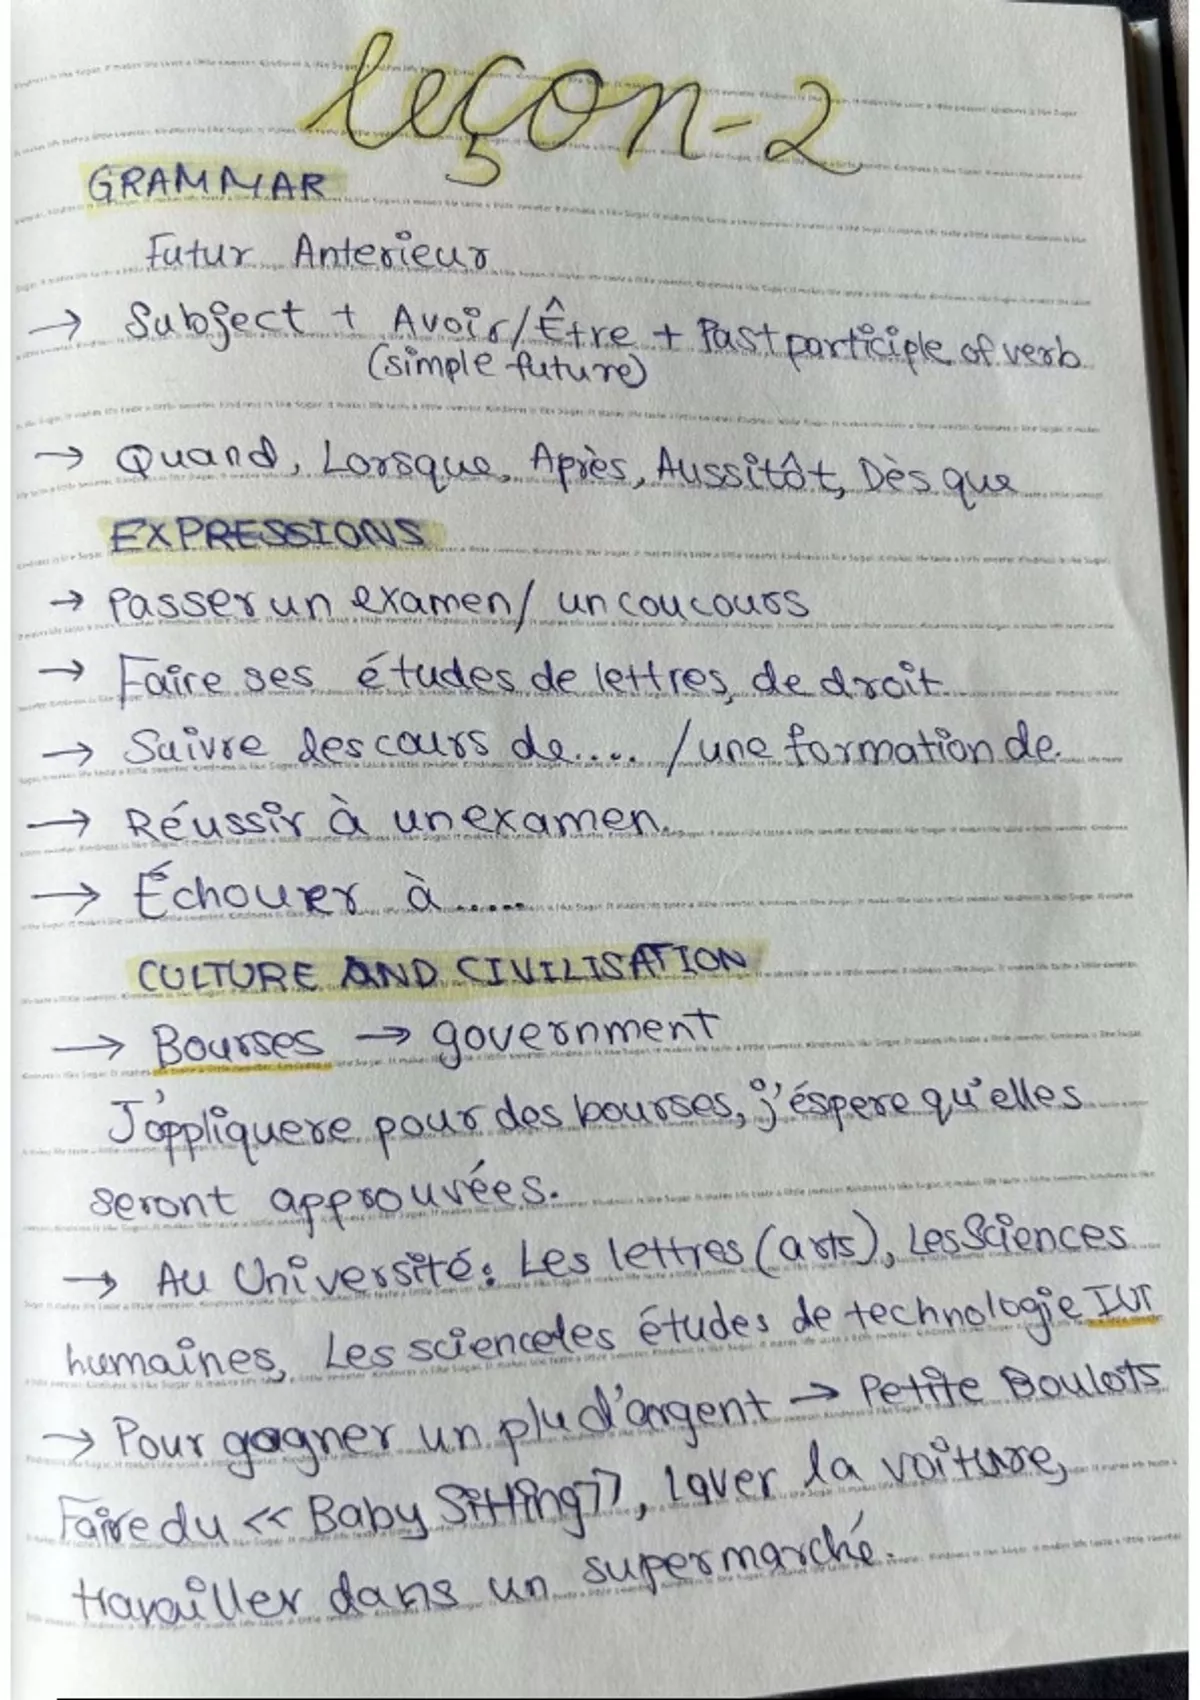 leçon-2
GRAMMAR
Futur Anterieur
→ Subject + Avoir/Être + Past participle of verb
(simple future)
→ Quand, Lorsque, Après, Aussitôt, Dès que
EXPRESSIONS
→ Passer un examen/ un coucours
→ Faire ses études de lettres, de droit
→ Suivre des cours de.... /une formation de.
→ Réussir à un examen.
→ Échouer à .....
CULTURE AND CIVILISATION
→ Bourses → government
J'appliquere pour des bourses, j'éspere qu'elles
seront approuvées.
→ Au Université: Les lettres (arts), Les Sciences
humaines, Les sciencetes études de technologie IUT
→ Pour gagner un plu d'argent → Petite Boulots
Faire du << Baby Sitting>>, laver la voiture,
travailler dans un supermarché.